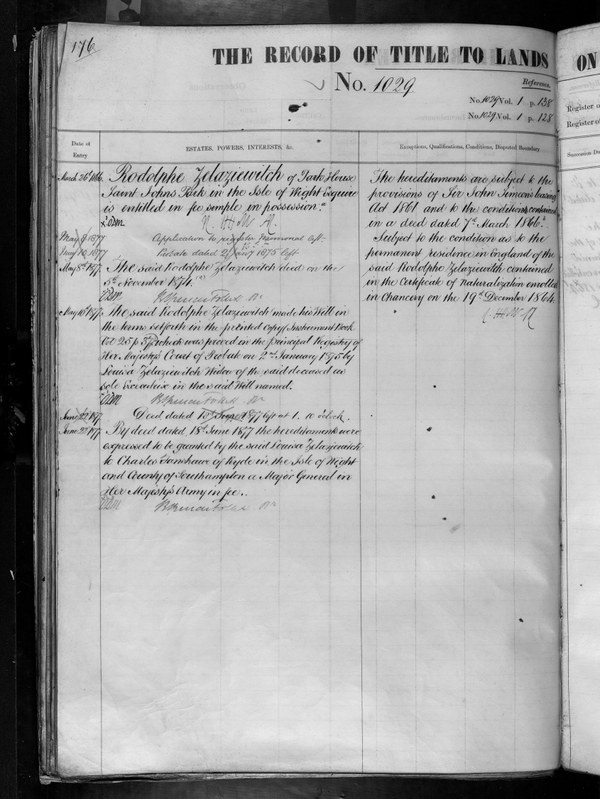 176
THE RECORD OF TITLE TO LANDS
ON
No. 1029
Reference.
No. 1029 Vol. 1 p. 128
No. 1029 Vol. 1 p. 128
Register o
Register of
Date of Entry
ESTATES, POWERS, INTERESTS, &c.
Exceptions, Qualifications, Conditions, Disputed Boundary
Succession Du
March 26th 1866
Rodolphe Zelaziewitch of Park House
Saint Johns Park in the Isle of Wight Esquire
is entitled in fee simple in possession.
May 9 1877
Application to register
left
May 1877
Probate dated 2 Jany 1875 left
May 8th 1877
The said Rodolphe Zelaziewitch died on the
5th November 1874.
May 10th 1877
The said Rodolphe Zelaziewitch made his Will in
the terms setforth in the printed Copy Instrument Book
Vol 25 p which was proved in the principal Registry of
Her Majesty's Court of Probate on 2nd January 1875 by
Louisa Zelaziewitch Widow of the said deceased as
sole Executrix in the said Will named.
Deed dated 18 June 1877 left at 1. o'clock.
June 22nd 1877
By deed dated 18th June 1877 the hereditaments were
expressed to be granted by the said Louisa Zelaziewitch
to Charles Fanshawe of Ryde in the Isle of Wight
and County of Southampton a Major General in
Her Majesty's Army in fee.
The hereditaments are subject to the
provisions of Sir John Simeons leasing
Act 1861 and to the conditions contained
in a deed dated 7th March 1866.
Subject to the condition as to the
permanent residence in England of the
said Rodolphe Zelaziewitch contained
in the Certificate of naturalization enrolled
in Chancery on the 19th December 1864